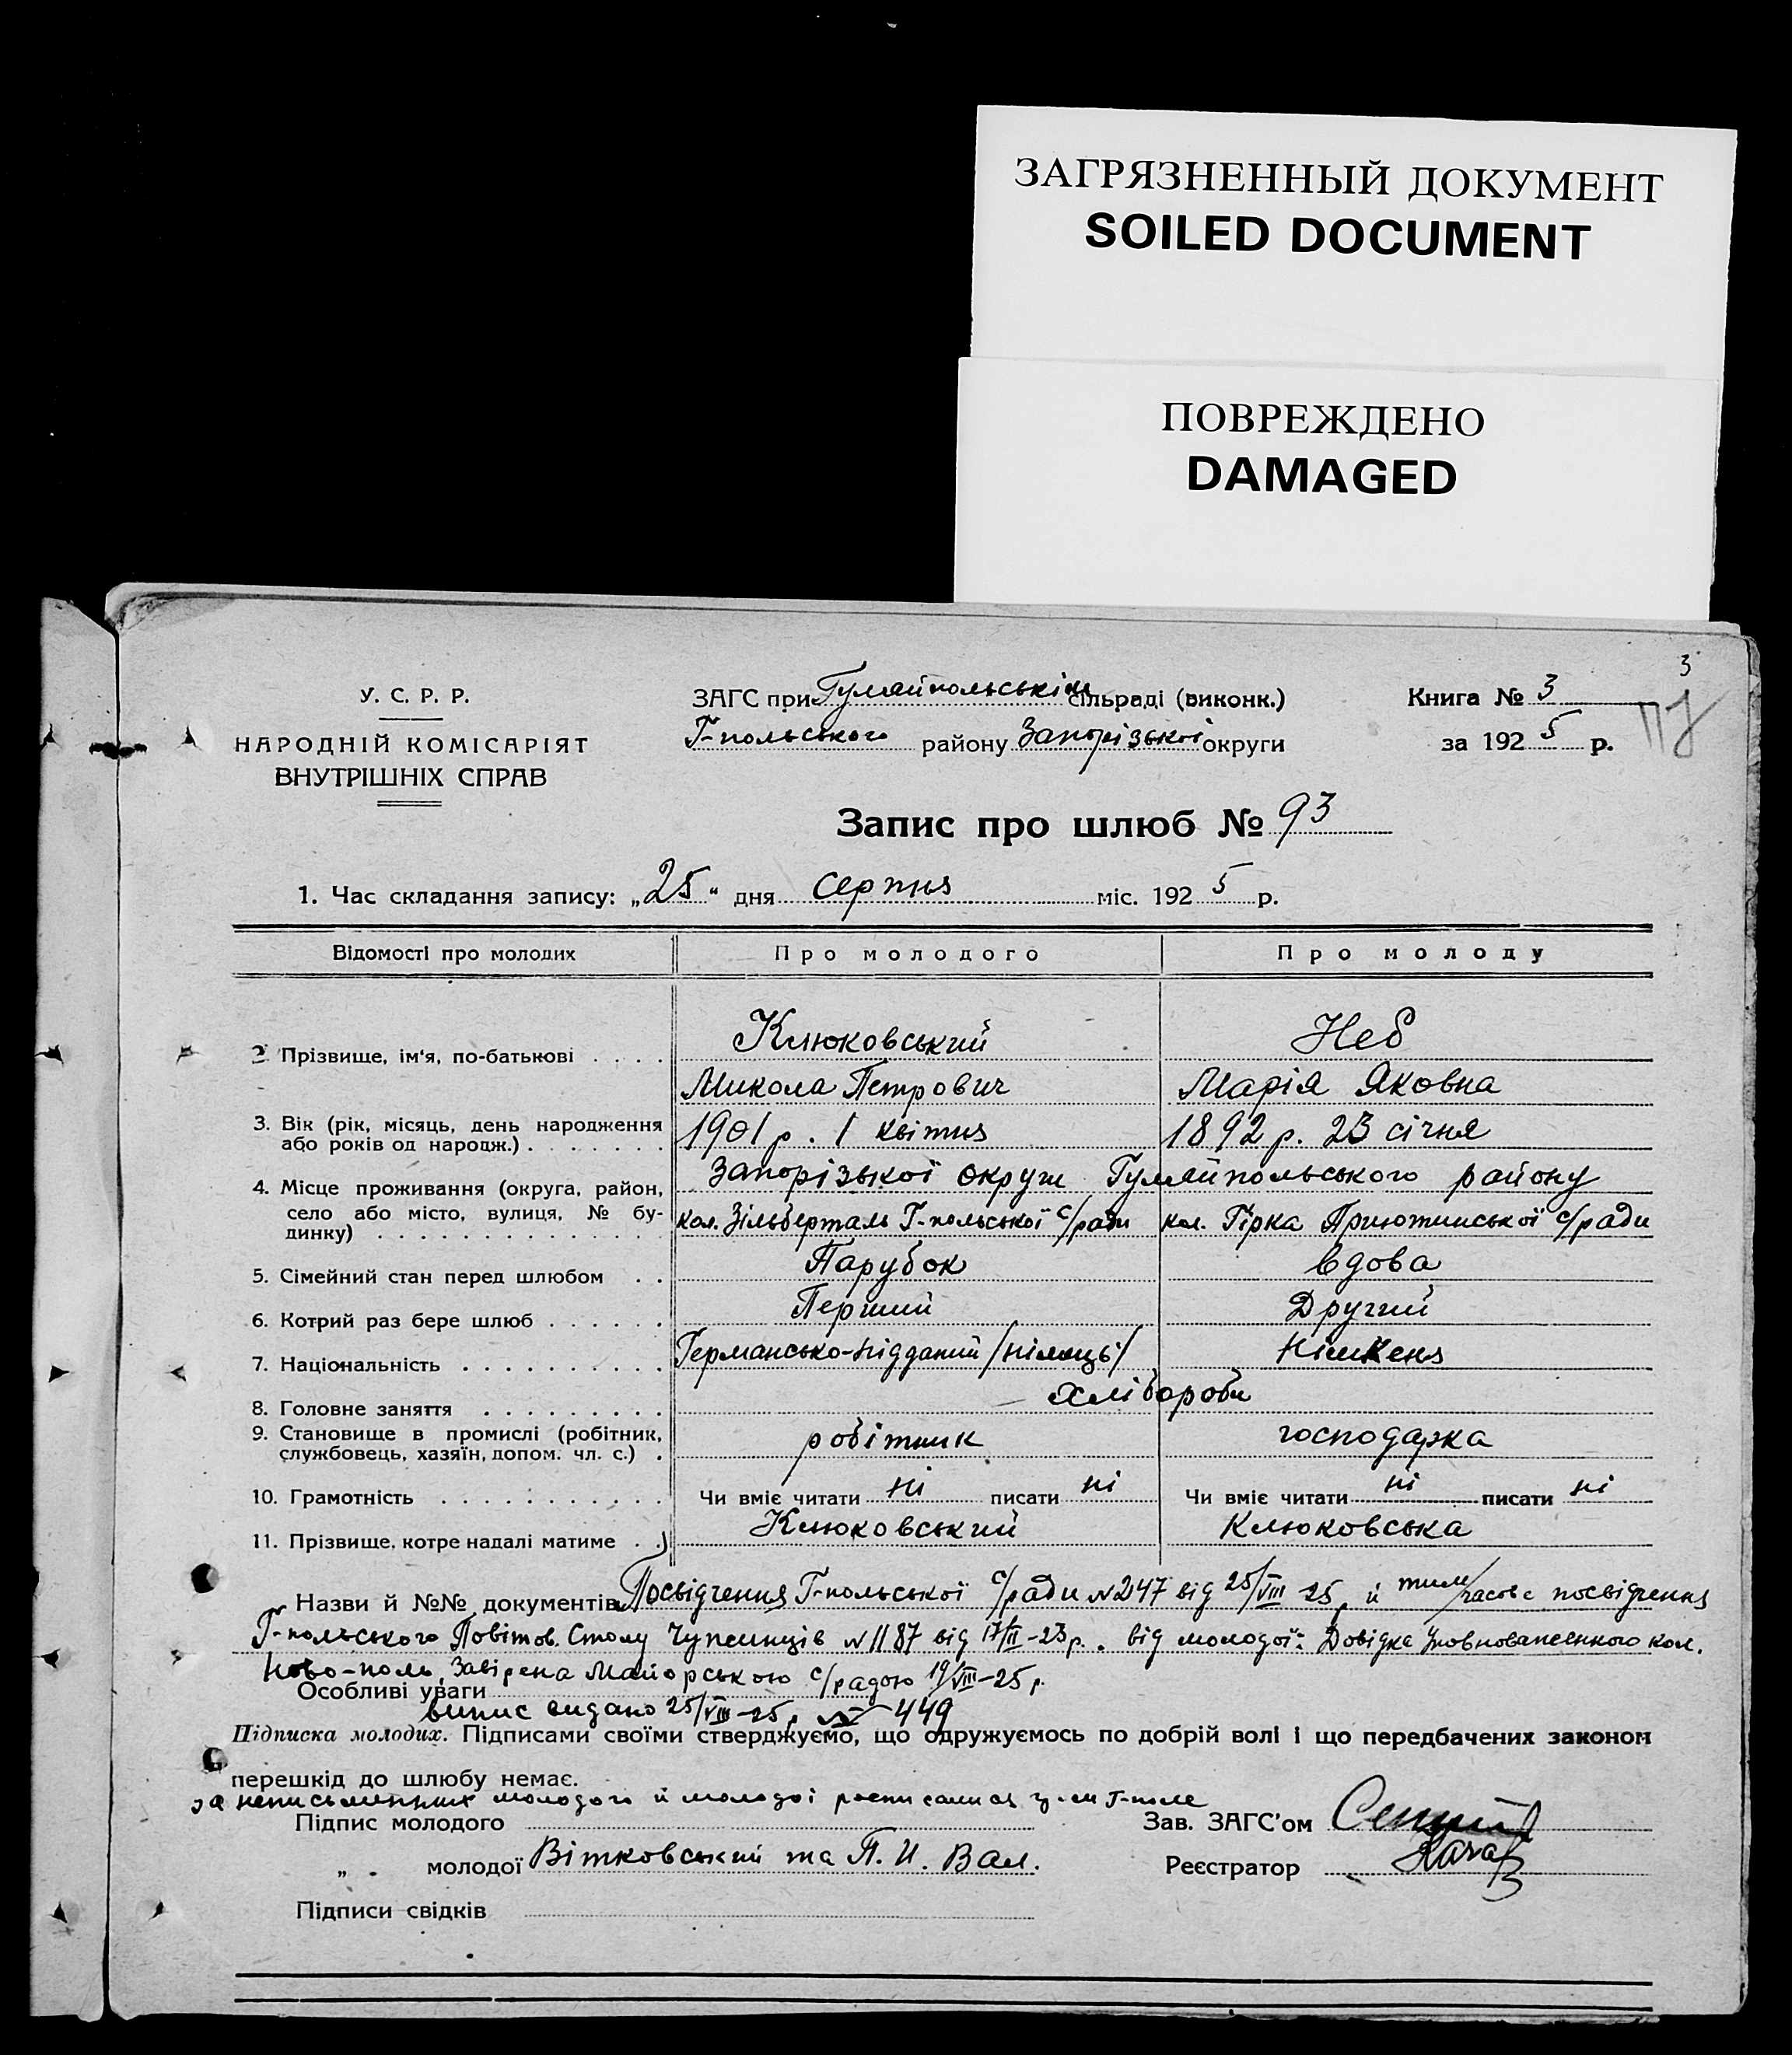 ЗАГРЯЗНЕННЫЙ ДОКУМЕНТ
SOILED DOCUMENT
ПОВРЕЖДЕНО
DAMAGED
3
У. С. Р. Р.
НАРОДНІЙ КОМІСАРІЯТ
ВНУТРІШНІХ СПРАВ
ЗАГС при Гуляйпольській сільраді (виконк.)
Г-польського району Запорізької округи
Книга № 3
за 1925 р.
117
Запис про шлюб № 93
1. Час складання запису: „25“ дня серпня міс. 1925 р.
Відомості про молодих Про молодого Про молоду
2. Прізвище, ім'я, по-батькові . . . . Клюковський Неб
Микола Петрович Марія Яковна
3. Вік (рік, місяць, день народження або років од народж.) . . . . . . . 1901 р. 1 квітня 1892 р. 23 січня
4. Місце проживання (округа, район, село або місто, вулиця, № будинку) . . . . . . . . . . . . . . Запорізької округи Гуляйпольського району
кол. Зільберталь Г-польської с/ради кол. Гірка Приютинської с/ради
5. Сімейний стан перед шлюбом . . Парубок вдова
6. Котрий раз бере шлюб . . . . . . Перший Другий
7. Національність . . . . . . . . . . Германсько-підданий /німець/ Німкеня
8. Головне заняття . . . . . . . . . хлібороби
9. Становище в промислі (робітник, службовець, хазяїн, допом. чл. с.) . робітник господарка
10. Грамотність . . . . . . . . . . . Чи вміє читати ні писати ні Чи вміє читати ні писати ні
11. Прізвище, котре надалі матиме . . Клюковський Клюковська
Назви й №№ документів Посвідчення Г-польської с/ради №247 від 25/VIII 25 р. й тим/часове посвідчення
Г-польського Повітов. Столу Чуженців №1187 від 17/II-23 р. від молодої: Довідка Уповноваженного кол.
Ново-поль, завірена Майорською с/радою 19/VIII-25 р.
Особливі уваги
випис видано 25/VIII-25 р. № 449
Підписка молодих. Підписами своїми стверджуємо, що одружуємось по добрій волі і що передбачених законом
перешкід до шлюбу немає.
за неписьменних молодого й молодої росписалися Г-поле
Підпис молодого
Зав. ЗАГС'ом
„ . молодої Вітковський та П. И. Вал.
Реєстратор
Підписи свідків